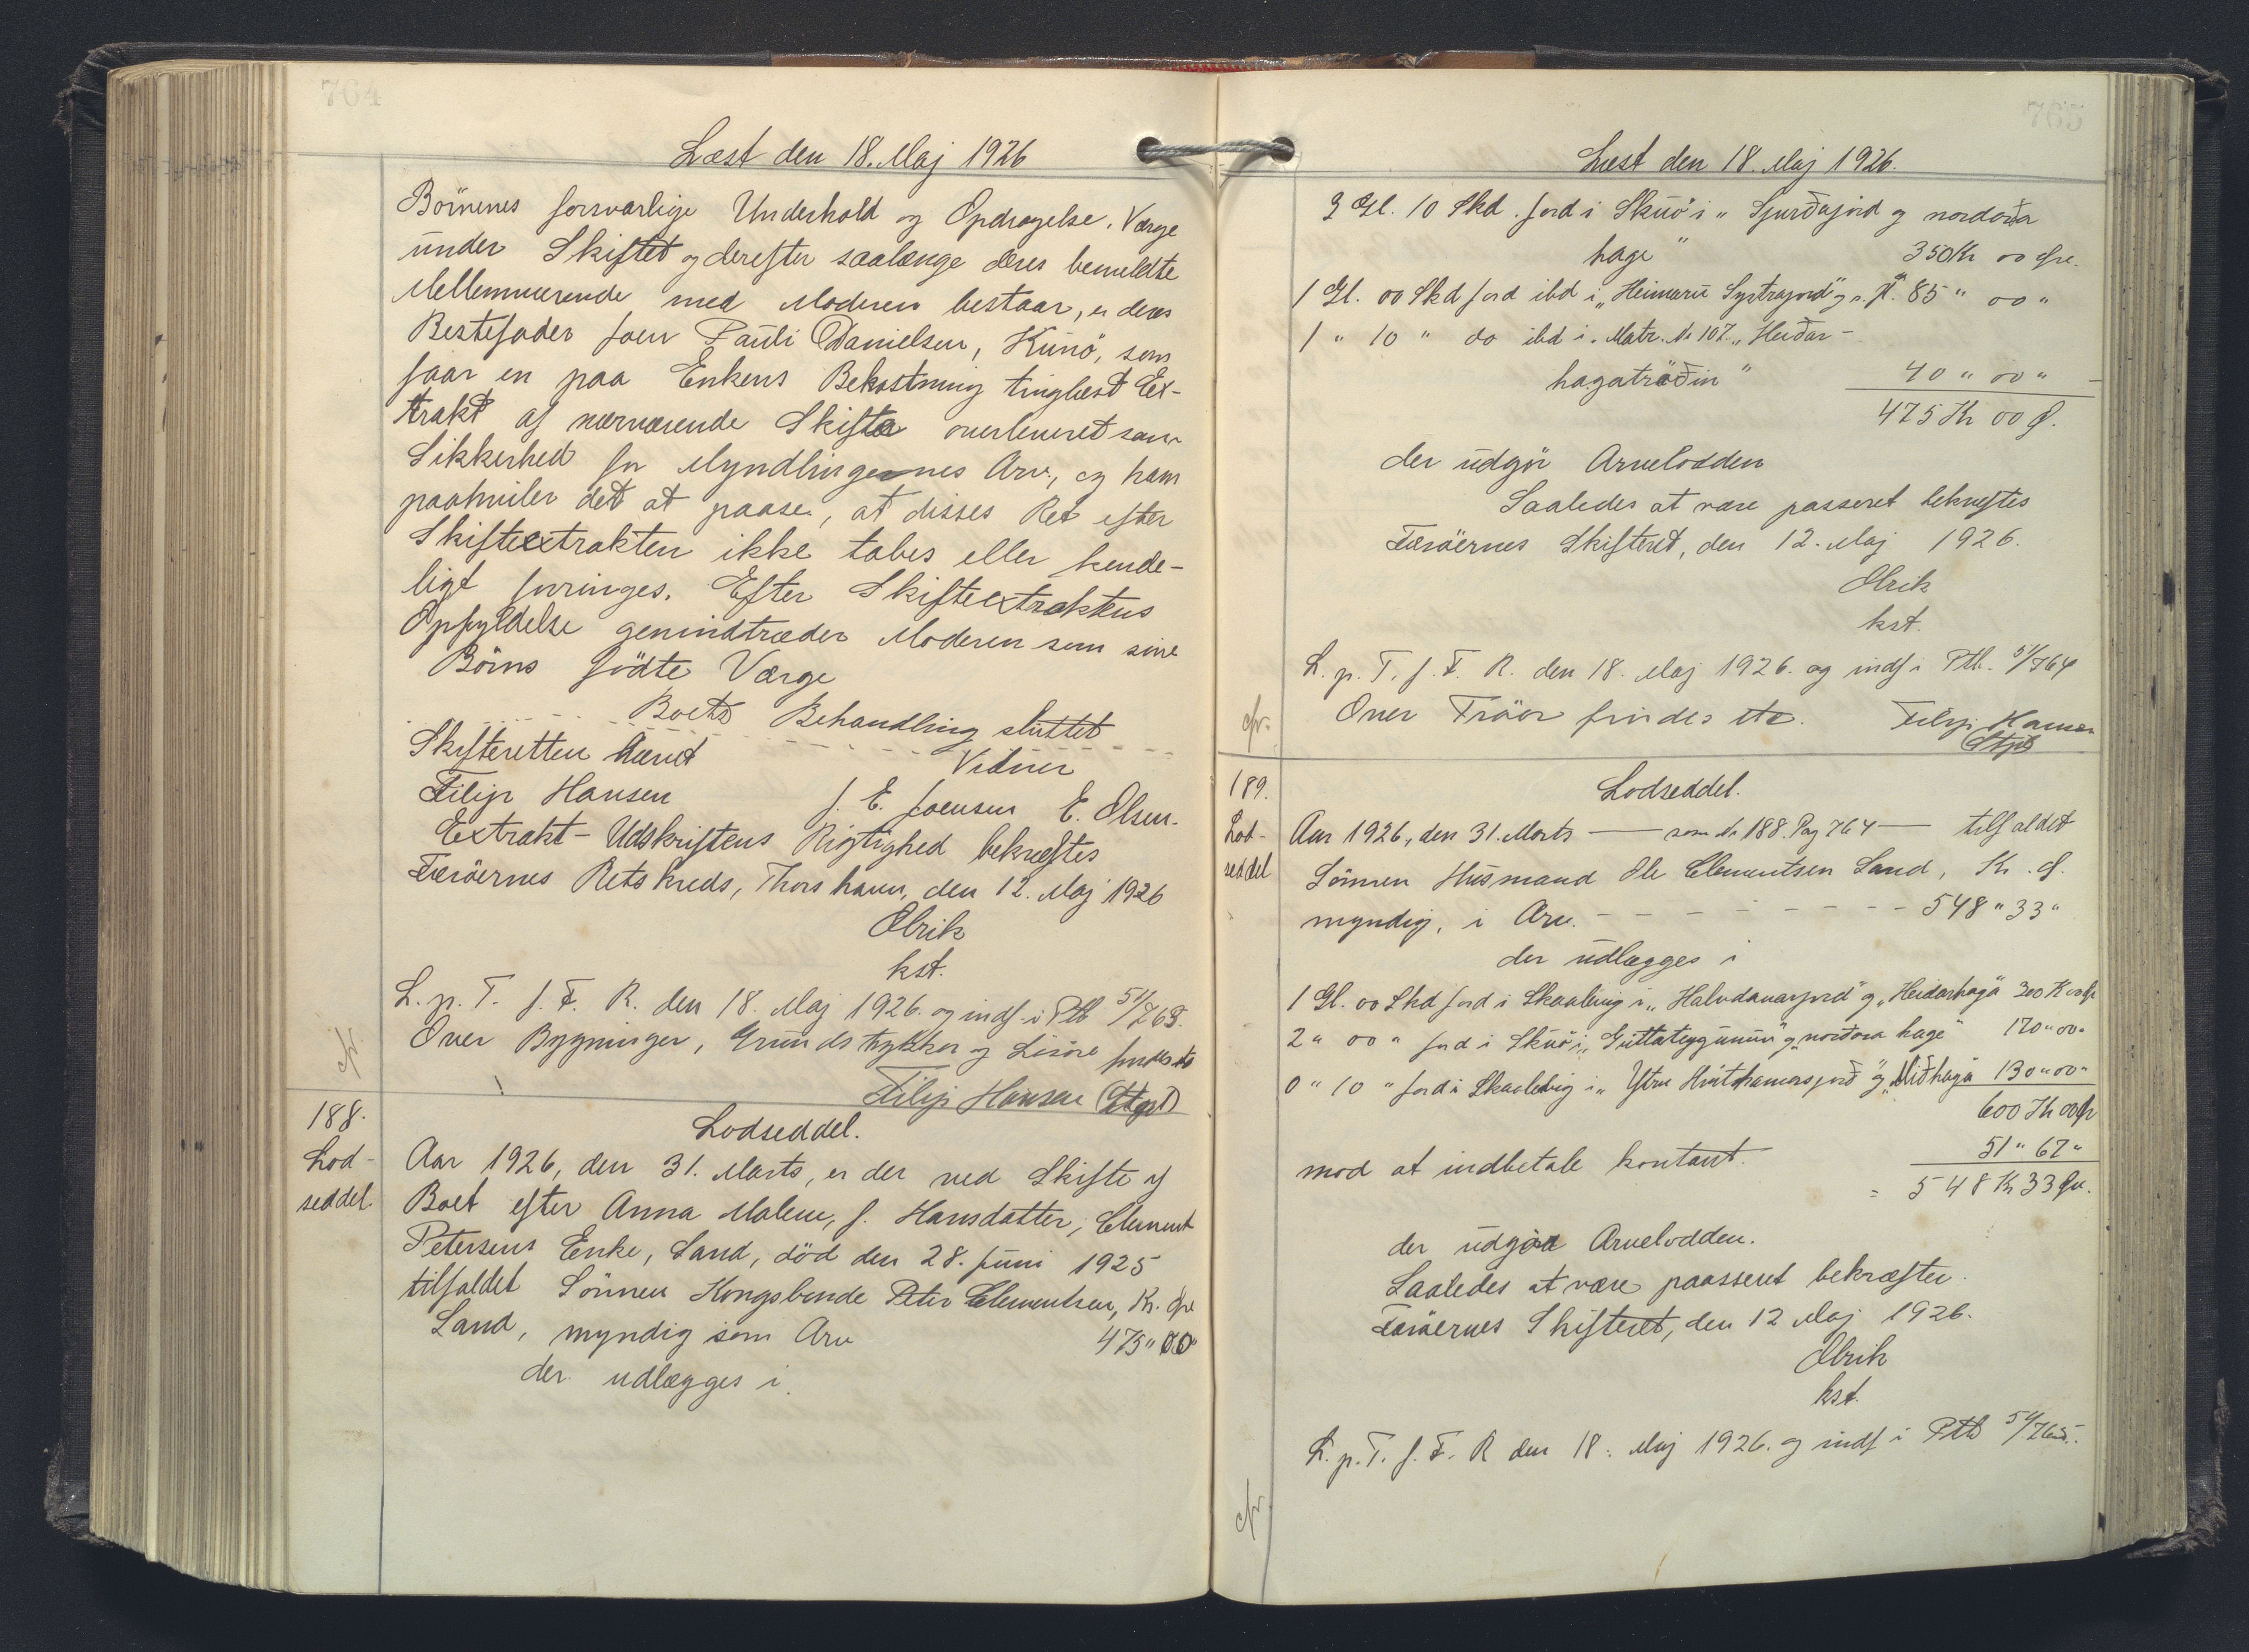 764
Læst den 18. Maj 1926
Börnenes forsvarlige Underhold og Opdragelse. Værge
under Skiftet og derefter saalænge deres bemeldte
Mellemværende med Moderen bestaar, er deres
Bestefader Joen Pauli Danielsen, Kunö, som
faar en paa Enkens Bekostning tinglæst Ex-
trakt af nærværende Skifte overleveret som
Sikkerhed for Myndlingernes Arv, og ham
paahviler det at paase, at disses Ret efter
Skifteextrakten ikke tabes eller kende-
ligt forringes. Efter Skifteextraktens
Opfyldelse genindtræder Moderen som sine
Börns födte Værge
Boets Behandling sluttet
Skifteretten hævet
Vidner
Filip Hansen J. E. Joensen E. Olsen.
Extrakt-Udskriftens Rigtighed bekræftes
Færöernes Retskreds, Thorshavn, den 12. Maj 1926
Olrik
kst.
L. p. T. f. F. R. den 18. Maj 1926. og indf. i Ptb 54/763.
Over Bygninger, Grundstykker og Lösöre findes etc
Filip Hansen (Stgd)
188.
Lod-
seddel.
Lodseddel.
Aar 1926, den 31. Marts, er der ved Skifte af
Boet efter Anna Malene, f. Hansdatter, Clement
Petersens Enke, Sand, död den 28. Juni 1925
tilfaldet Sönnen Kongsbonde Peter Clementsen, Kr. Øre
Sand, myndig som Arv 475 " 00
der udlægges i.
765
Læst den 18. Maj 1926.
3 Gl. 10 Skd. Jord i Skuö i " Sjurðajörd og nordara
hage " 350 Kr 00 Øre.
1 Gl. 00 Skd Jord ibd i „Heimaru Systrajord" g. n. H. 85 " 00 "
1 " 10 " do ibd i. Matr. № 107. „Heiðar-
hagatrøðin " 40 " 00 "
475 Kr 00 Ø.
der udgör Arvelodden
Saaledes at være passeret bekræftes
Færöernes Skifteret, den 12. Maj 1926.
Olrik
kst.
L. p. T. f. F. R. den 18. Maj 1926. og indf i Ptb. 54/764
Over Tröer findes etc. Filip Hansen
(Stgd)
189.
Lod-
seddel
Lodseddel.
Aar 1926, den 31. Marts — som № 188. Pag 764 — tilfaldet
Sönnen Husmand Ole Clementsen Sand, Kr. Ø.
myndig, i Arv. - - - - - - - - - 548 " 33 "
der udlægges i
1 Gl. 00 Skd Jord i Skaaling i „Halvdanarjord" og „Heidarhaga 300 K 00 Ø
2 " 00 " Jord i Skuö i „Guttateygunum" og „nordara hage" 170 " 00 "
0 " 10 " Jord i Skaalebig i „Ytru Hvitshamarsjord" og „Miðhaga 130 " 00 "
600 Kr 00 Ø
mod at indbetale kontant. 51 " 67 "
= 548 Kr 33 Øre.
der udgör Arvelodden.
Saaledes at være paasseret bekræfter.
Færöernes Skifteret, den 12 Maj 1926.
Olrik
kst.
L. p. T. f. F. R den 18. Maj 1926. og indf i Ptb 54/765.